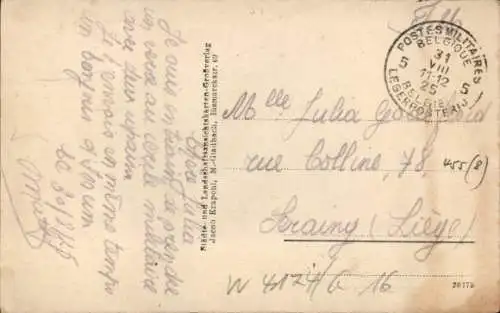 Chère Julia
Je suis en train de prendre
un verre au cercle militaire
avec deux copains
Je t'envois en même temps
un bonjour d'un ami
Le 30/8/25
Städte- und Landschaftsansichtskarten-Großverlag
Jacob Krapohl, M.-Gladbach, Bismarckstr. 60
POSTES MILITAIRES
BELGIQUE
5 5
31
VIII
11-12
25
BELGIË
LEGERPOSTERIJ
Mlle Julia
rue Colline, 78,
Seraing (Liège)
455/8
W 4124/G 16